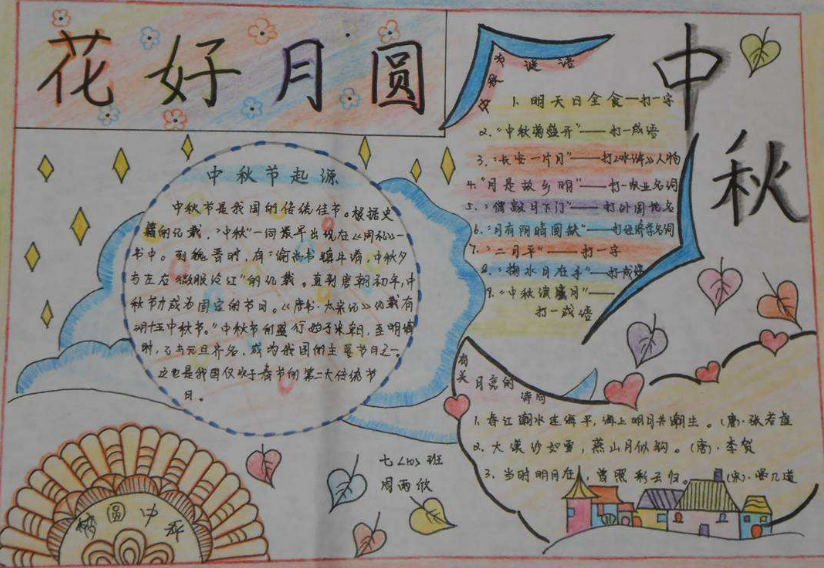 花好月圆
中秋
中秋节起源
中秋节是我国的传统佳节。根据史
籍的记载，“中秋”一词最早出现在《周礼》一
书中。到魏晋时，有“谕尚书镇牛渚，中秋夕
与左右微服泛江”的记载。直到唐朝初年，中
秋节才成为固定的节日。《唐书·太宗记》记载有
“八月十五中秋节”。中秋节的盛行始于宋朝，至明清
时，已与元旦齐名，成为我国的主要节日之一。
这也是我国仅次于春节的第二大传统节
日。
中秋灯谜语
1. 明天日全食——打一字
2.“中秋菊盛开”——打一成语
3.“长安一片月”——打《水浒》人物
4.“月是故乡明”——打一农业名词
5.“僧敲月下门”——打外国地名
6.“月有阴晴圆缺”——打经济学名词
7.“二月平”——打一字
8.“掬水月在手”——打成语
9.“中秋演通月”——
打一成语
有关月亮的
诗句
1. 春江潮水连海平，海上明月共潮生。（唐）·张若虚
2. 大漠沙如雪，燕山月似钩。（唐）·李贺
3. 当时明月在，曾照彩云归。（宋）·晏几道
七<10>班
梦圆中秋